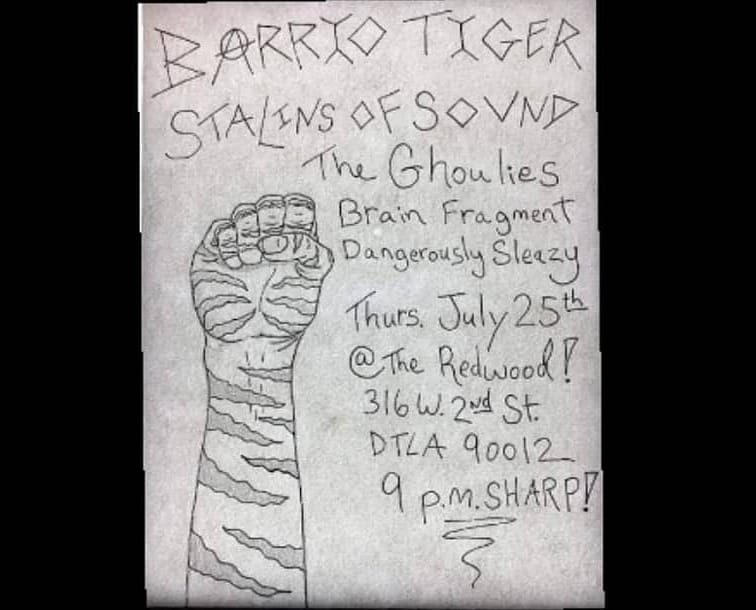 BARRIO TIGER
STALINS OF SOUND
The Ghoulies
Brain Fragment
Dangerously Sleazy
Thurs. July 25th
@ The Redwood!
316 W. 2nd St.
DTLA 90012
9 p.m. SHARP!